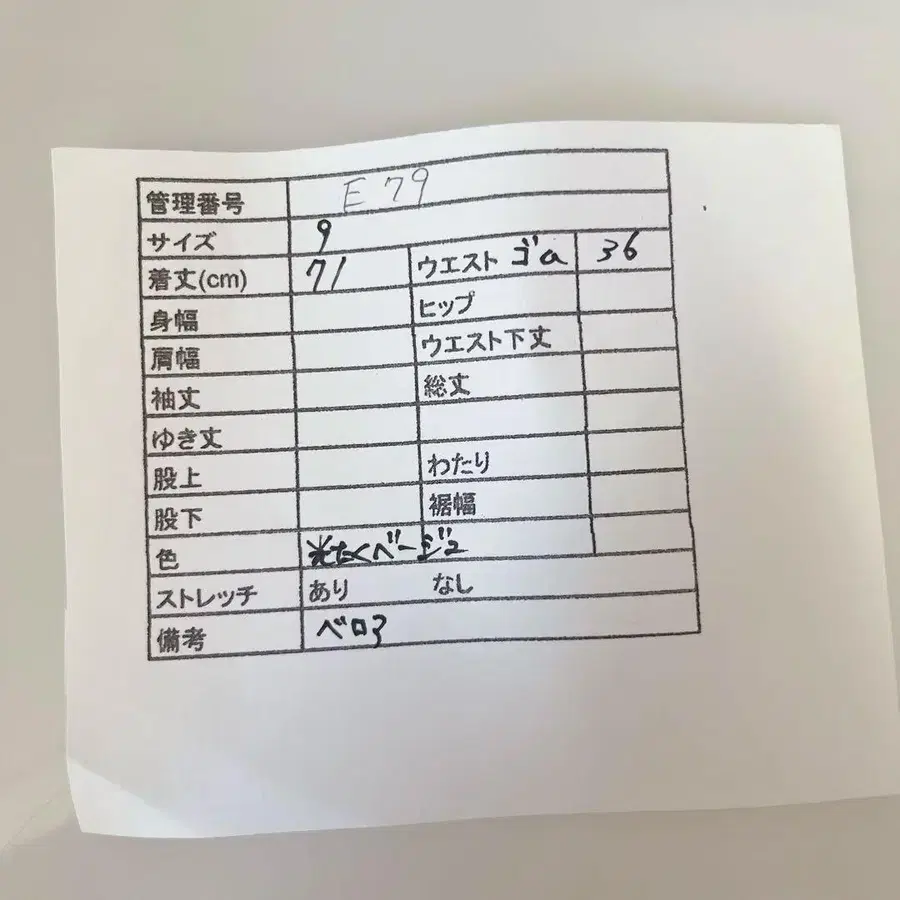 管理番号 E79
サイズ 9
着丈(cm) 71 ウエスト ゴム 36
身幅 ヒップ
肩幅 ウエスト下丈
袖丈 総丈
ゆき丈
股上 わたり
股下 裾幅
色 光たくベージュ
ストレッチ あり なし
備考 ベロア